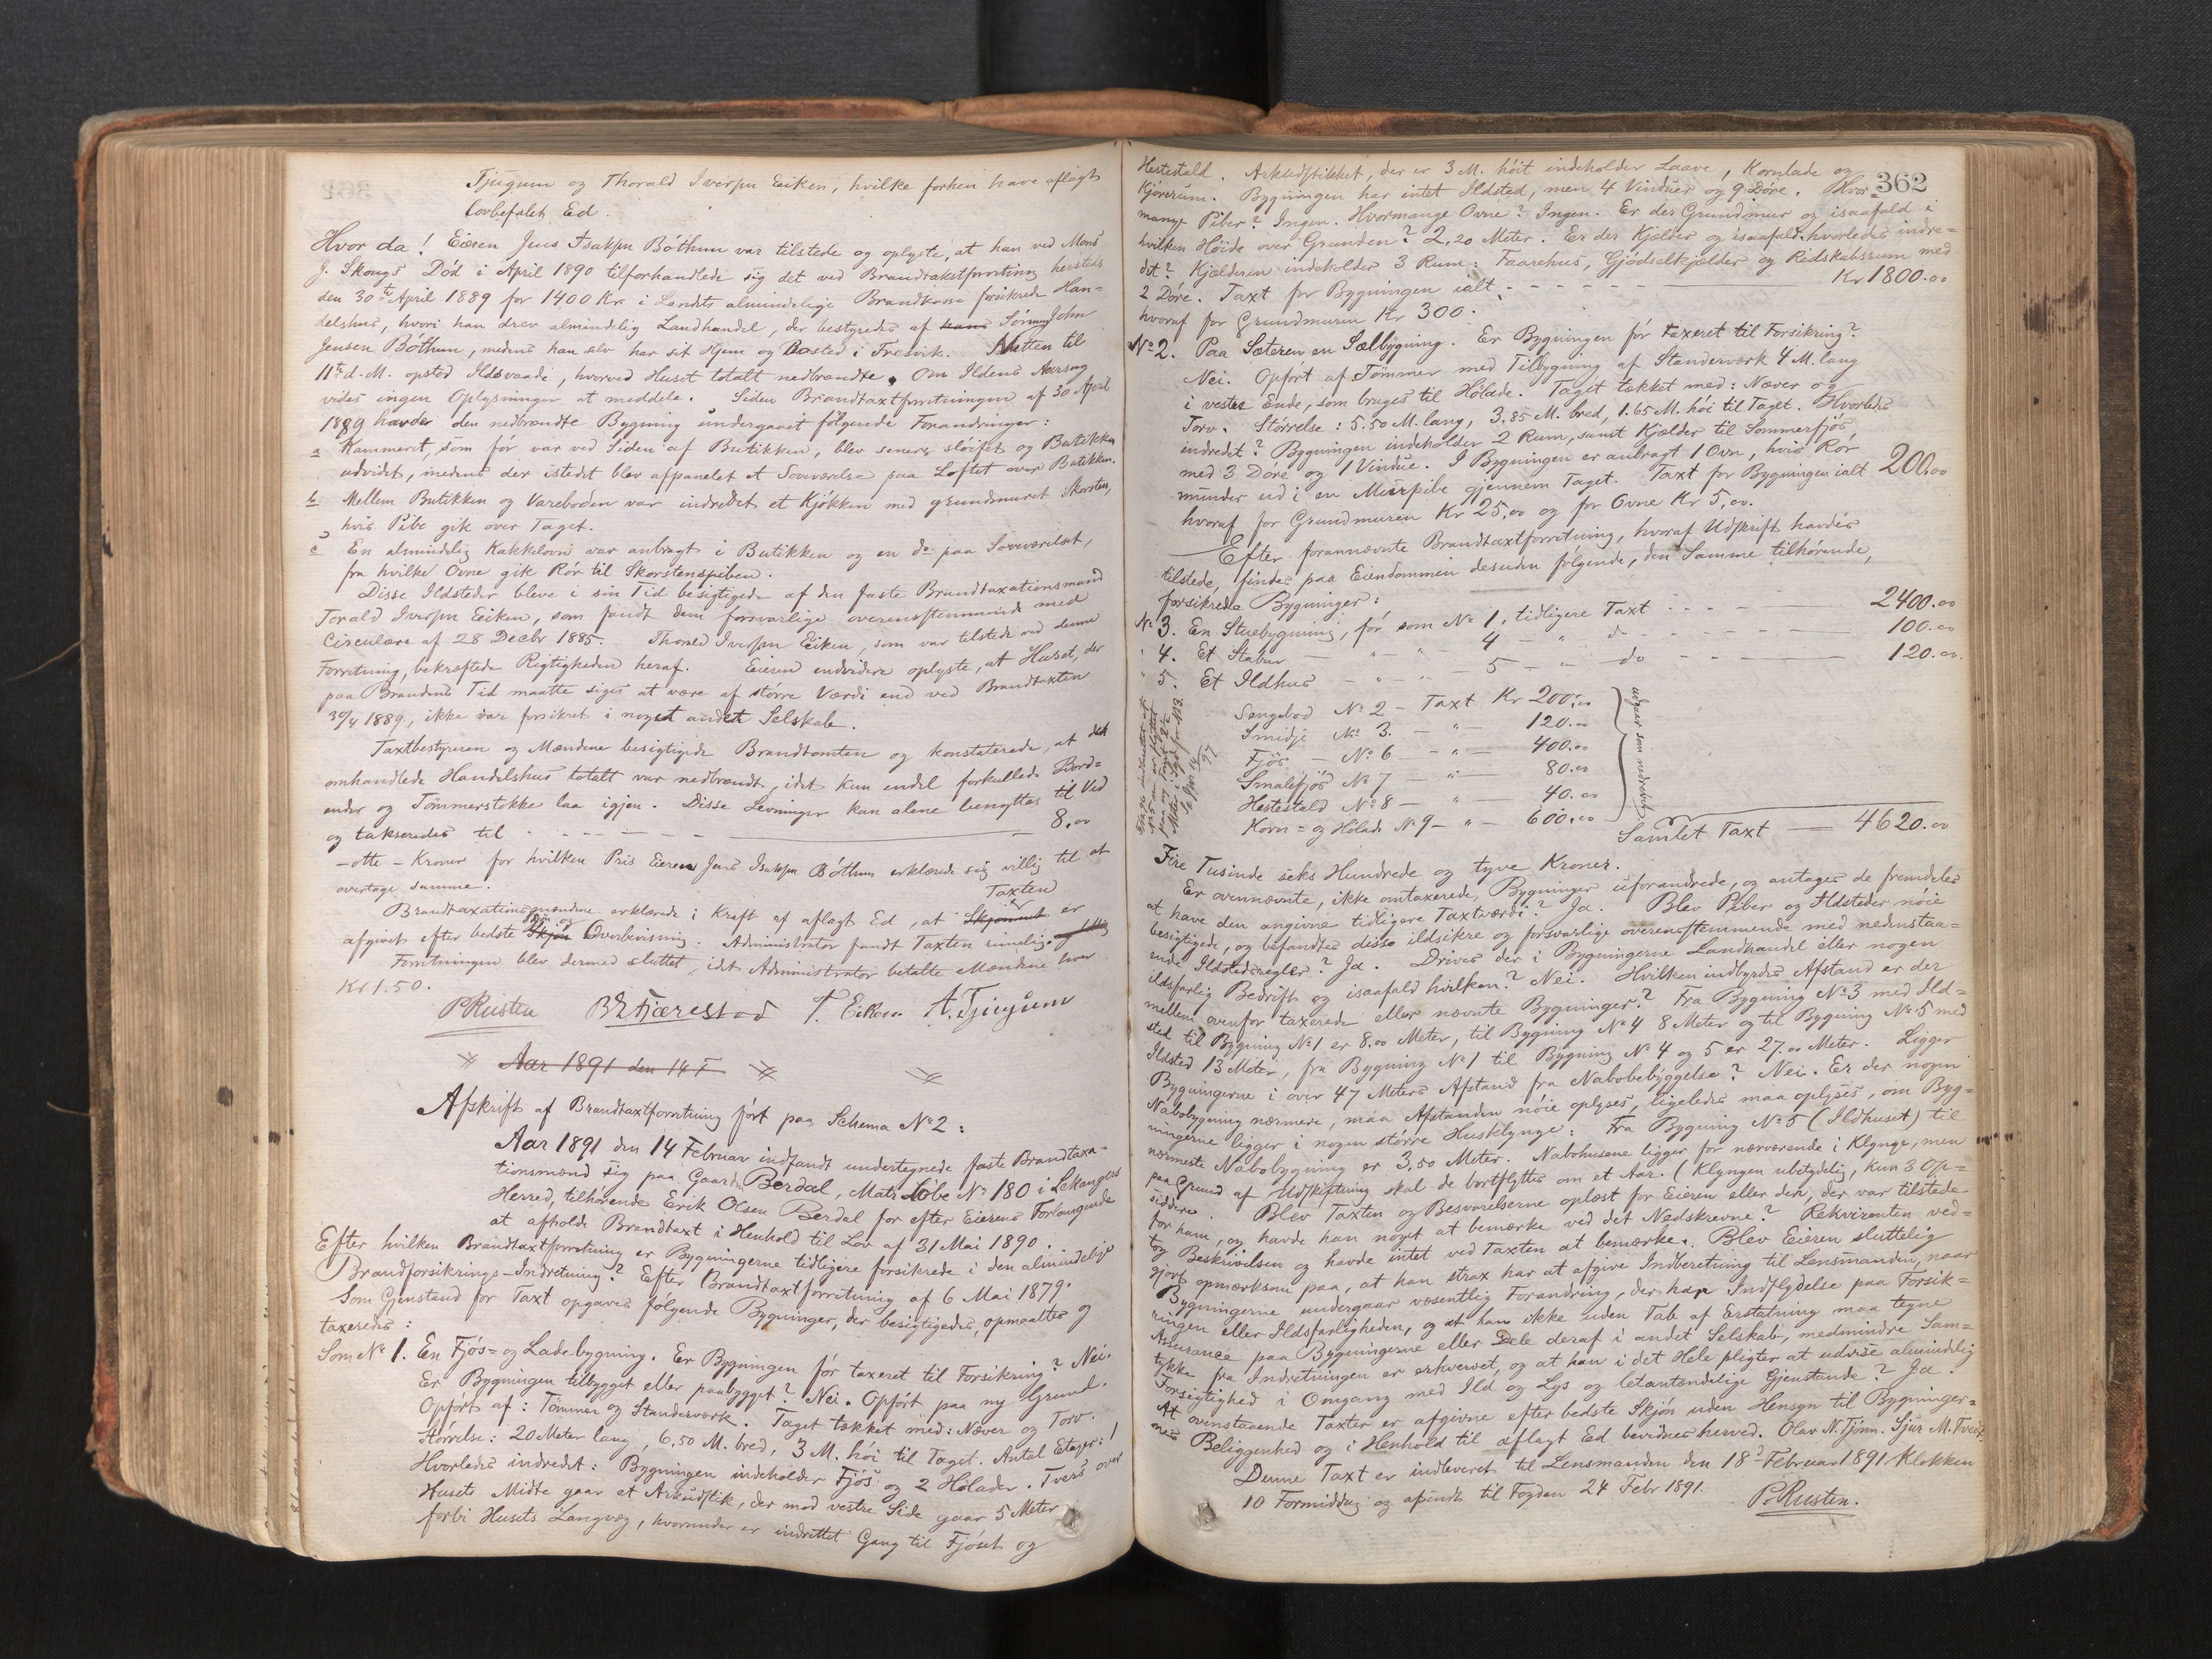 Tjugum og Thorald Iversen Eiken, hvilke forhen have aflagt
lovbefalet Ed.
Hvor da! Eieren Jens Isaksen Böthun var tilstede og oplyste, at han ved Mons
J. Skougs Död i April 1890 tilforhandlede sig det ved Brandtakstforretning hersteds
den 30te April 1889 for 1400 Kr i Landets almindelige Brandkasse forsikrede Han-
delshus, hvori han drev almindelig Landhandel, der bestyredes af hans Sönnen John
Jensen Böthun, medens han selv har sit Hjem og Bosted i Fresvik. Natten til
11te d. M. opstod Ildsvaade, hvorved Huset totalt nedbrændte. Om Ildens Aarsag
vides ingen Oplysninger at meddele. Siden Brandtaxtforretningen af 30 April
1889 havde den nedbrændte Bygning undergaaet følgende Forandringer:
a Kammeret, som för var ved Siden af Butikken, blev senere slöifet og Butikken
udvidet, medens der istedet blev afpanelet et Soveværelse paa Loftet over Butikken.
b Mellem Butikken og Vareboden var indredet et Kjökken med grundmuret Skorsten,
hvis Pibe gik over Taget.
c En almindelig Kakkelovn var anbragt i Butikken og en do paa Soveværelset,
fra hvilke Ovne gik Rör til Skorstenspiben.
Disse Ildsteder bleve i sin Tid besigtigede af den faste Brandtaxationsmand
Torald Iversen Eiken, som fandt dem forsvarlige overensstemmende med
Circulære af 28 Decbr 1885. Thorald Iversen Eiken, som var tilstede ved denne
Forretning, bekræftede Rigtigheden heraf. Eieren endvidere oplyste, at Huset, der
paa Brandens Tid maatte siges at være af större Værdi end ved Brandtaxten
30/4 1889, ikke var forsikret i noget andet Selskab.
Taxtbestyreren og Mændene besigtigede Brandtomten og konstaterede, at det
omhandlede Handelshus totalt var nedbrændt, idet kun endel forkullede Bord-
ender og Tömmerstokke laa igjen. Disse Levninger kan alene benyttes til Ved
og takseredes til - - - - - 8.00
- otte - Kroner for hvilken Pris Eieren Jens Isaksen Böthun erklærede sig villig til at
overtage samme.
Taxten
Brandtaxationsmændene erklærede i Kraft af aflagt Ed, at Skjönnet er
afgivet efter bedste Skjön og Overbevisning. Administrator fandt Taxten rimelig.
Forretningen blev dermed sluttet, idet Administrator betalte Mændene hver
Kr 1.50.
P Rusten B E Fjærestad T. Eiken A. Tjugum
Aar 1891 den 14 F
Afskrift af Brandtaxtforretning fört paa Schema No 2:
Aar 1891 den 14 Februar indfandt undertegnede faste Brandtaxa-
tionsmænd sig paa Gaard Berdal, Matr Löbe No 180 i Lekangers
Herred, tilhörende Erik Olsen Berdal for efter Eierens Forlangende
at afholde Brandtaxt i Henhold til Lov af 31 Mai 1890.
Efter hvilken Brandtaxtforretning er Bygningerne tidligere forsikrede i den almindelige
Brandforsikrings-Indretning? Efter Brandtaxtforretning af 6 Mai 1879.
Som Gjenstand for Taxt opgaves følgende Bygninger, der besigtigedes, opmaaltes og
taxeredes:
Som No 1. En Fjös- og Ladebygning. Er Bygningen för taxeret til Forsikring? Nei.
Er Bygningen tilbygget eller paabygget? Nei. Opfört paa ny Grund.
Opfört af: Tömmer og Standerværk. Taget tækket med: Næver og Torv.
Störrelse: 20 Meter lang, 6,50 M. bred, 3 M. höi til Taget. Antal Etager: 1
Hvorledes indredet: Bygningen indeholder Fjös og 2 Hölader. Tvers over
Husets Midte gaar et Arkudstik, der mod vestre Side gaar 5 Meter
forbi Husets Langvæg, hvorunder er indrettet Gang til Fjöset og
362
Hestestald. Arkudstikket, der er 3 M. höit indeholder Laave, Kornlade og
Kjörerum. Bygningen har intet Ildsted, men 4 Vinduer og 9 Döre. Hvor-
mange Piber? Ingen. Hvormange Ovne? Ingen. Er der Grundmur og isaafald i
hvilken Höide over Grunden? 2,20 Meter. Er der Kjælder og isaafald hvorledes indre-
det? Kjælderen indeholder 3 Rum: Faarehus, Gjödselkjælder og Redskabsrum med
2 Döre. Taxt for Bygningen ialt - - - - - Kr 1800.00
hvoraf for Grundmuren Kr 300.
No 2. Paa Sæteren en Sælbygning. Er Bygningen för taxeret til Forsikring?
Nei. Opfört af Tömmer med Tilbygning af Standerværk 4 M. lang
i vester Ende, som bruges til Hölade. Taget tækket med: Næver og
Torv. Störrelse: 5.50 M. lang, 3.85 M. bred, 1.65 M. höi til Taget. Hvorledes
indredet? Bygningen indeholder 2 Rum, samt Kjælder til Sommerfjös
med 3 Döre og 1 Vindue. I Bygningen er anbragt 1 Ovn, hvis Rör
munder ud i en Murpibe gjennem Taget. Taxt for Bygningen ialt 200.00
hvoraf for Grundmuren Kr 25,00 og for Ovne Kr 5,00.
Efter forannævnte Brandtaxtforretning, hvoraf Udskrift havdes
tilstede, findes paa Eiendommen desuden følgende, den Samme tilhörende,
forsikrede Bygninger:
No 3. En Stuebygning, för som No 1, tidligere Taxt - - - 2400.00
" 4. Et Stabur - " - " - 4 - " - do - - - 100.00
" 5. Et Ildhus - " - " - 5 - " - do - - - 120.00
Sengebod No 2 - Taxt Kr 200.00
Smidje No 3. - " - 120.00
Fjös - No 6 - " - 400.00
Smalefjös No 7 - " - 80.00
Hestestald No 8 - " - 40.00
Korn- og Hölade No 9 - " - 600.00
udgaar som nedrevet
Samlet Taxt - 4620.00
Fire Tusinde seks Hundrede og tyve Kroner.
Er ovennævnte, ikke omtaxerede, Bygninger uforandrede, og antages de fremdeles
at have den angivne tidligere Taxtværdi? Ja. Blev Piber og Ildsteder nöie
besigtigede, og befandtes disse ildsikre og forsvarlige overensstemmende med nedenstaa-
ende Ildstedsregler? Ja. Drives der i Bygningerne Landhandel eller nogen
ildsfarlig Bedrift og isaafald hvilken? Nei. Hvilken indbyrdes Afstand er der
mellem ovenfor taxerede eller nævnte Bygninger? Fra Bygning No 3 med Ild-
sted til Bygning No 1 er 8.00 Meter, til Bygning No 4 8 Meter og til Bygning No 5 med
Ildsted 13 Meter, fra Bygning No 1 til Bygning No 4 og 5 er 27.00 Meter. Ligger
Bygningerne i over 47 Meters Afstand fra Nabobebyggelse? Nei. Er der nogen
Nabobygning nærmere, maa Afstanden nöie oplyses, ligeledes maa oplyses, om Byg-
ningerne ligger i nogen större Husklynge: Fra Bygning No 5 (Ildhuset) til
nærmeste Nabobygning er 3,50 Meter. Nabohusene ligger for nærværende i Klynge, men
paa Grund af Udskiftning skal de bortflyttes om et Aar. (Klyngen ubetydelig, kun 3 Op-
siddere. Blev Taxten og Besvarelserne oplæst for Eieren eller den, der var tilstede
for ham, og havde han noget at bemærke ved det Nedskrevne? Rekvirenten ved-
tog Beskrivelsen og havde intet ved Taxten at bemærke. Blev Eieren sluttelig
gjort opmærksom paa, at han strax har at afgive Indberetning til Lensmanden, naar
Bygningerne undergaar væsentlig Forandring, der har Indflydelse paa Forsik-
ringen eller Ildsfarligheden, og at han ikke uden Tab af Erstatning maa tegne
Assurance paa Bygningerne eller Dele deraf i andet Selskab, medmindre Sam-
tykke fra Indretningen er erhvervet, og at han i det Hele pligter at udvise almindelig
Forsigtighed i Omgang med Ild og Lys og letantændelige Gjenstande? Ja.
At ovenstaaende Taxter er afgivne efter bedste Skjön uden Hensyn til Bygninger-
nes Beliggenhed og i Henhold til aflagt Ed bevidnes herved. Olav N. Tjönn. Sjur M. Tveit.
Denne Taxt er indleveret til Lensmanden den 18de Februar 1891 Klokken
10 Formiddag og afsendt til Fogden 24 Febr 1891.
P. Rusten.